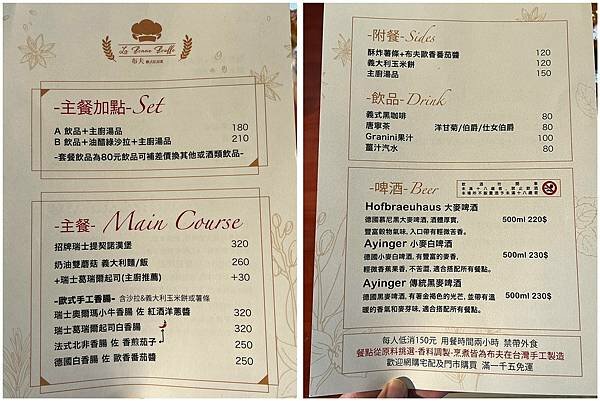 La Bonne Bouffe
布夫 歐式餐酒館
-主餐加點-Set
A 飲品+主廚湯品 180
B 飲品+油醋綠沙拉+主廚湯品 210
-套餐飲品為80元飲品可補差價換其他或酒類飲品-
-主餐- Main Course
招牌瑞士提契諾漢堡 320
奶油雙蘑菇 義大利麵/飯 260
+瑞士葛瑞爾起司(主廚推薦) +30
-歐式手工香腸- 含沙拉&義大利玉米餅或薯條
瑞士奧爾瑪小牛香腸 佐 紅酒洋蔥醬 320
瑞士葛瑞爾起司白香腸 320
法式北非香腸 佐 香煎茄子 250
德國白香腸 佐 歐香番茄醬 250
-附餐-Sides
酥炸薯條+布夫歐香番茄醬 120
義大利玉米餅 120
主廚湯品 150
-飲品-Drink
義式黑咖啡 80
唐寧茶 洋甘菊/伯爵/仕女伯爵 80
Granini果汁 100
薑汁汽水 80
-啤酒-Beer
未滿十八歲者,禁止飲酒
Hofbraeuhaus 大麥啤酒
德國慕尼黑大麥啤酒, 酒體厚實, 500ml 220$
豐富穀物氣味, 入口帶有輕微苦香。
Ayinger 小麥白啤酒
德國小麥白啤酒, 有豐富的麥香, 500ml 230$
輕微香蕉果香, 不苦澀, 適合搭配所有餐點。
Ayinger 傳統黑麥啤酒
德國黑麥啤酒, 有著金褐色的光芒, 並帶有溫 500ml 230$
暖的香氣和麥芽味, 適合搭配所有餐點。
每人低消150元 用餐時間兩小時 禁帶外食
餐點從原料挑選-香料調製-烹煮皆為布夫在台灣手工製造
歡迎網購宅配及門市購買 滿一千五免運